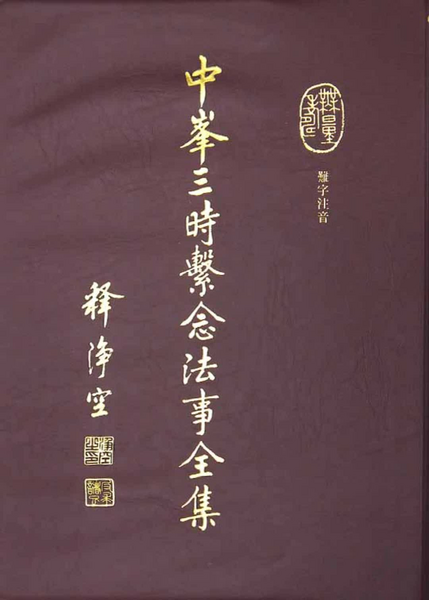 難字注音
中峯三時繫念法事全集
釋淨空